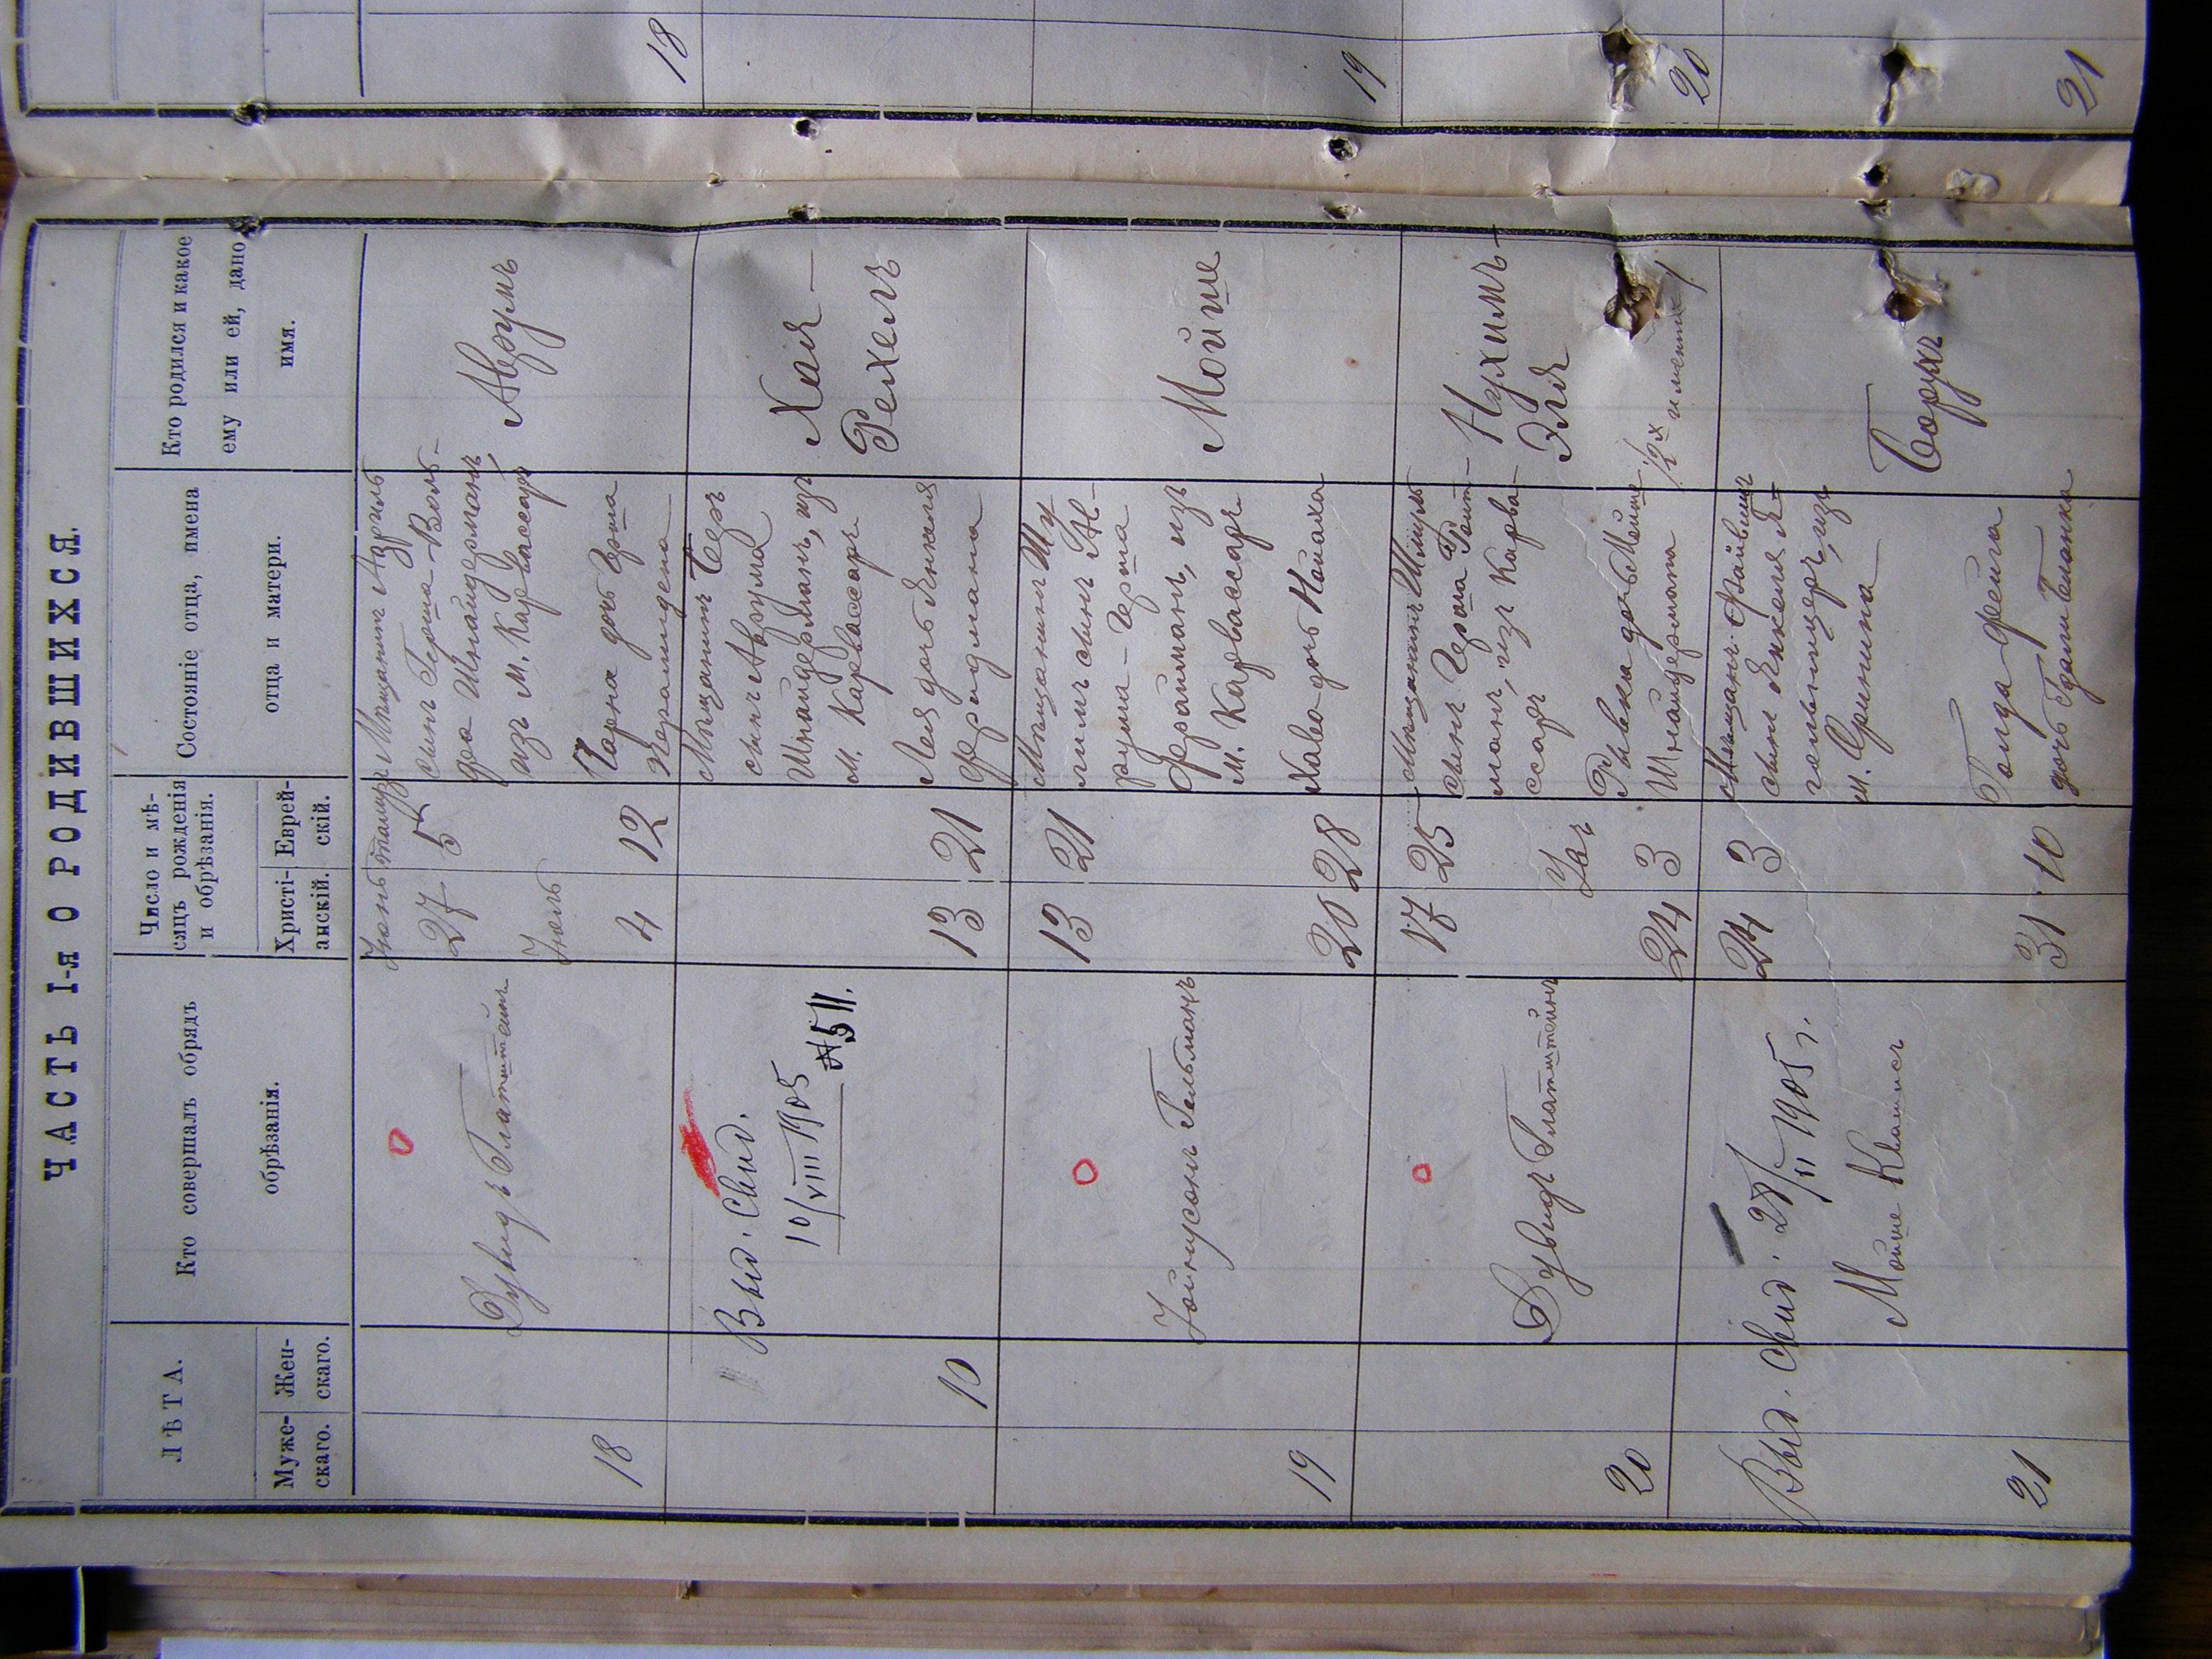 ЧАСТЬ I-я О РОДИВШИХСЯ.
ЛѢТА.
Муже-
скаго.
Жен-
скаго.
Кто совершалъ обрядъ
обрѣзанія.
Число и мѣ-
сяцъ рожденія
и обрѣзанія.
Христі-
анскій.
Еврей-
скій.
Состояніе отца, имена
отца и матери.
Кто родился и какое
ему или ей, дано
имя.
18
Дувидъ Глатштейнъ
Іюнь
27
Іюль
4
тамузъ
5
12
Мѣщанинъ Азриль
сынъ Герша-Воль-
фа Шнайдерманъ,
изъ м. Карвассаръ
дочь Герша
Аврумъ
18
10
Выд. Свид.
10/VIII 1905
№ 511.
13
21
Мѣщанинъ Беръ
сынъ Аврума
Шнайдерманъ, изъ
м. Карвассаръ
Лея дочь Янкеля
Фридмана
Хая-
Рехель
19
Гельманъ
13
20
21
28
Мѣщанинъ Шу
лимъ сынъ Ав-
рума-Герша
Фрайманъ, изъ
м. Карвассаръ
Хава дочь Наймаха
Мойше
19
20
Дувидъ Глатштейнъ
17
24
25
3
Мѣщанинъ Шмиль
сынъ Герша Гойт-
манъ, изъ Карва-
ссаръ
Рывка дочь Мойше
Шнайдермана
Нухимъ-
Эля
/2х именный/
20
21
Выд. Свид. 28/II 1905 г.
Мойше
24
31
3
10
Мѣщанинъ Файвишъ
сынъ Янкеля
изъ
м. Гринина
Голда-Фейга
дочь
Борухъ
21